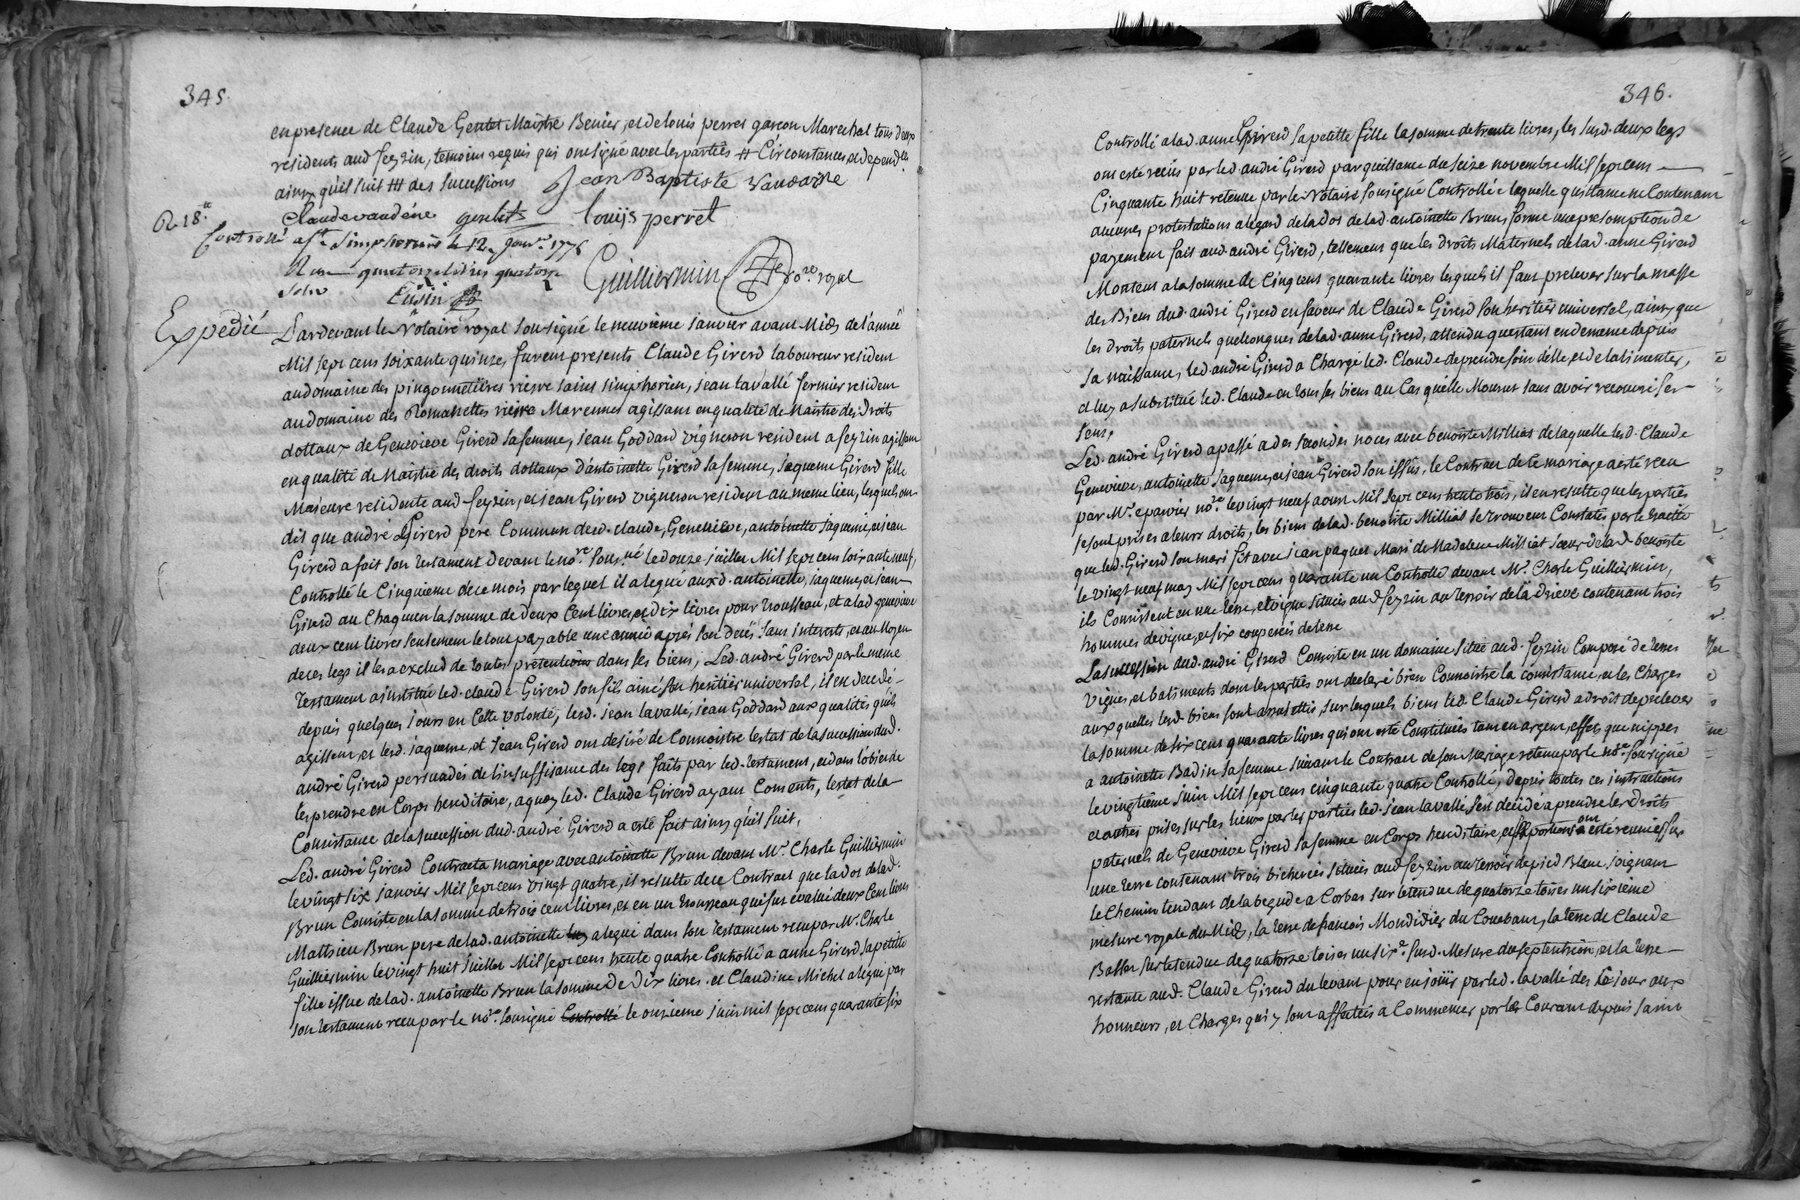 345.
en presence de Claude Gentet Maitre Benier, et de louis perret garçon Marechal tous deux
residents aud feyzin, temoins requis qui ont signé avec les parties # Circonstances et dependces
ainsy qu'il suit ## des sucessions Jean Baptiste vandaine
Claude vandéne gentet louijs perret
R. 18 s.
Controllé a st. Simphorien le 12 janvr. 177
quatorze livres quatorze
solz
Guilliermin no.re royal
Expédié
Pardevant le Notaire royal sousigné le neuvieme janvier avant Midy de l'année
Mil sept cens soixante quinze, furent presents Claude Girerd laboureur resident
au domaine des pingonnetieres riere saint simphorien, jean lavallé fermier resident
au domaine des Romanettes riere Marennes agissant en qualité de Maitre des droits
dottaux de Genevieve Girerd sa femme, jean Goddard vigneron resident a feyzin agissant
en qualité de Maitre des droits dottaux d'antoinette Girerd sa femme, jaquemе Girerd fille
Majeure residente aud feyzin, et jean Girerd vigneron resident au meme lieu, lesquels ont
dit que andré Girerd pere Commun desd. claude, Genevieve, antoinette jaqueme, et jean
Girerd a fait son testament devant le no.re sous.né le douze juillet Mil sept cens soixante neuf,
Controllé le Cinquieme de ce mois par lequel il a legué auxd. antoinette, jaqueme, et jean
Girerd au Chaqu'en la somme de deux Cent livres, et dix livres pour trousseau, et a lad genevieve
deux cent livres seulement le tout payable une année après son decès sans interests, et au Moyen
de ces legs il les a exclud de toutes pretentions dans ses biens, Led. andré Girerd par le meme
testament a institué led. claude Girerd son fils ainé son heritier universel, il est decedé
depuis quelques jours en Cette volonté, lesd. jean lavallé, jean Goddard aux qualités qu'ils
agissent, et lesd. jaqueme, et jean Girerd ont desiré de Connoistre l'estat de la sucession dud.
andré Girerd persuadés de linsuffisance des legs faits par led. testament, et dans lobjet de
les prendre en Corps hereditaire, a quoy led. Claude Girerd ayant Consenti, l'estet de la
Consistance de la sucession dud. andré Girerd a esté fait ainsy qu'il suit,
Led. andré Girerd Contracta mariage avec antoinette Brun devant Mr. Charle Guilliermin
le vingt six janvier Mil sept cens vingt quatre, il resulte de ce Contract que la dot de lad.
Brun Consiste en la somme de trois cent livres, et en un trousseau qui fut evalué deux Cent livres
Mathieu Brun pere de lad. antoinette a legué dans son testament recu par Mr. Charle
Guilliermin le vingt huit juillet Mil sept cens trente quatre Controllé a anne Girerd sa petitte
fille issue de lad. antoinette Brun la somme de Dix livres. et Claudine Michel a legué par
son testament recu par le no.re sousigné Controllé le onzieme juin mil sept cens quarante six
346.
Controllé a lad. anne Girerd sa petitte fille la somme de trente livres, les susd. deux legs
ont esté recus par led andré Girerd par quittance du seize novembre Mil sept cens
Cinquante huit retenue par le Notaire sousigné Controllée laquelle quittance ne Contenant
aucunes protestations a legard de la Dot de lad. antoinette Brun, forme une presomption de
payement fait aud. andré Girerd, tellement que les droits Maternels de lad. anne Girerd
Montent a la somme de Cinq cens quarante livres lesquels il faut prelever sur la masse
des Biens dud. andré Girerd en faveur de Claude Girerd son heritier universel, ainsy que
les droits paternels quelconques de lad. anne Girerd, attendu qu'estant en demence depuis
sa naissance, led. andré Girerd a Chargé led. Claude de prendre soin d'elle, et de lalimenter,
et luy a substitué led. Claude en tous ses biens au Cas qu'elle Mourut sans avoir recouvré ses
sens,
Led. andré Girerd a passé a des secondes noces avec benoite Milliat de laquelle lesd. Claude
Genevieve, antoinette jaqueme, et jean Girerd sont issus, le Contract de Ce mariage a esté recu
par Mr. eparvier no.re le vingt neuf aout Mil sept cens trente trois, il en resulte que les parties
se sont prises a leurs droits, les biens de lad. benoite Milliat se trouvent Constatés par le traitté
que led. Girerd son mari fit avec jean paquet Mari de Madeleine Milliat sœur de lad. benoite
le vingt neuf may Mil sept cens quarante un Controllé devant Mr. Charle Guilliermin,
ils Consistent en une terre, et vigne situées aud feyzin au terroir de la Drieve contenant trois
hommes de vigne, et six coupées de terre
La sucession dud. andré Girerd Consiste en un domaine situé aud. feyzin Composé de terres
vignes, et batiments dont les parties ont declaré bien Connoistre la consistance, et les Charges
auxquelles lesd. biens sont assujettis, sur lesquels biens led. Claude Girerd a droit de prelever
la somme de six cens quarante livres qui ont esté Constitués tant en argent, effets que nippes
a antoinette Badin sa femme suivant le Contract de son Mariage retenu par le no.re sousigné
le vingtieme juin Mil sept cens cinquante quatre Controllé, depuis toutes ces instructions
et autres prises sur les lieux par les parties led. jean lavallé, s'est decidé a prendre les droits
paternels de Genevieve Girerd sa femme en Corps hereditaire, et ses portions ont esté reunies sur
une terre contenant trois bicherées situées aud feyzin au terroir de pied Blanc joignant
le Chemin tendant de la begude a Corbas sur letendue de quatorze toises un sixieme
mesure royale du Midy, la terre de francois Mondidier du Couchant, la terre de Claude
Baffer sur letendue de quatorze toises un six.e susd. Mesure du septentrion, et la terre
restante aud. Claude Girerd du levant pour en jouir par led. lavallé des Ce jour aux
honneurs, et Charges qui y sont affectées a Commencer par les Courant depuis saint